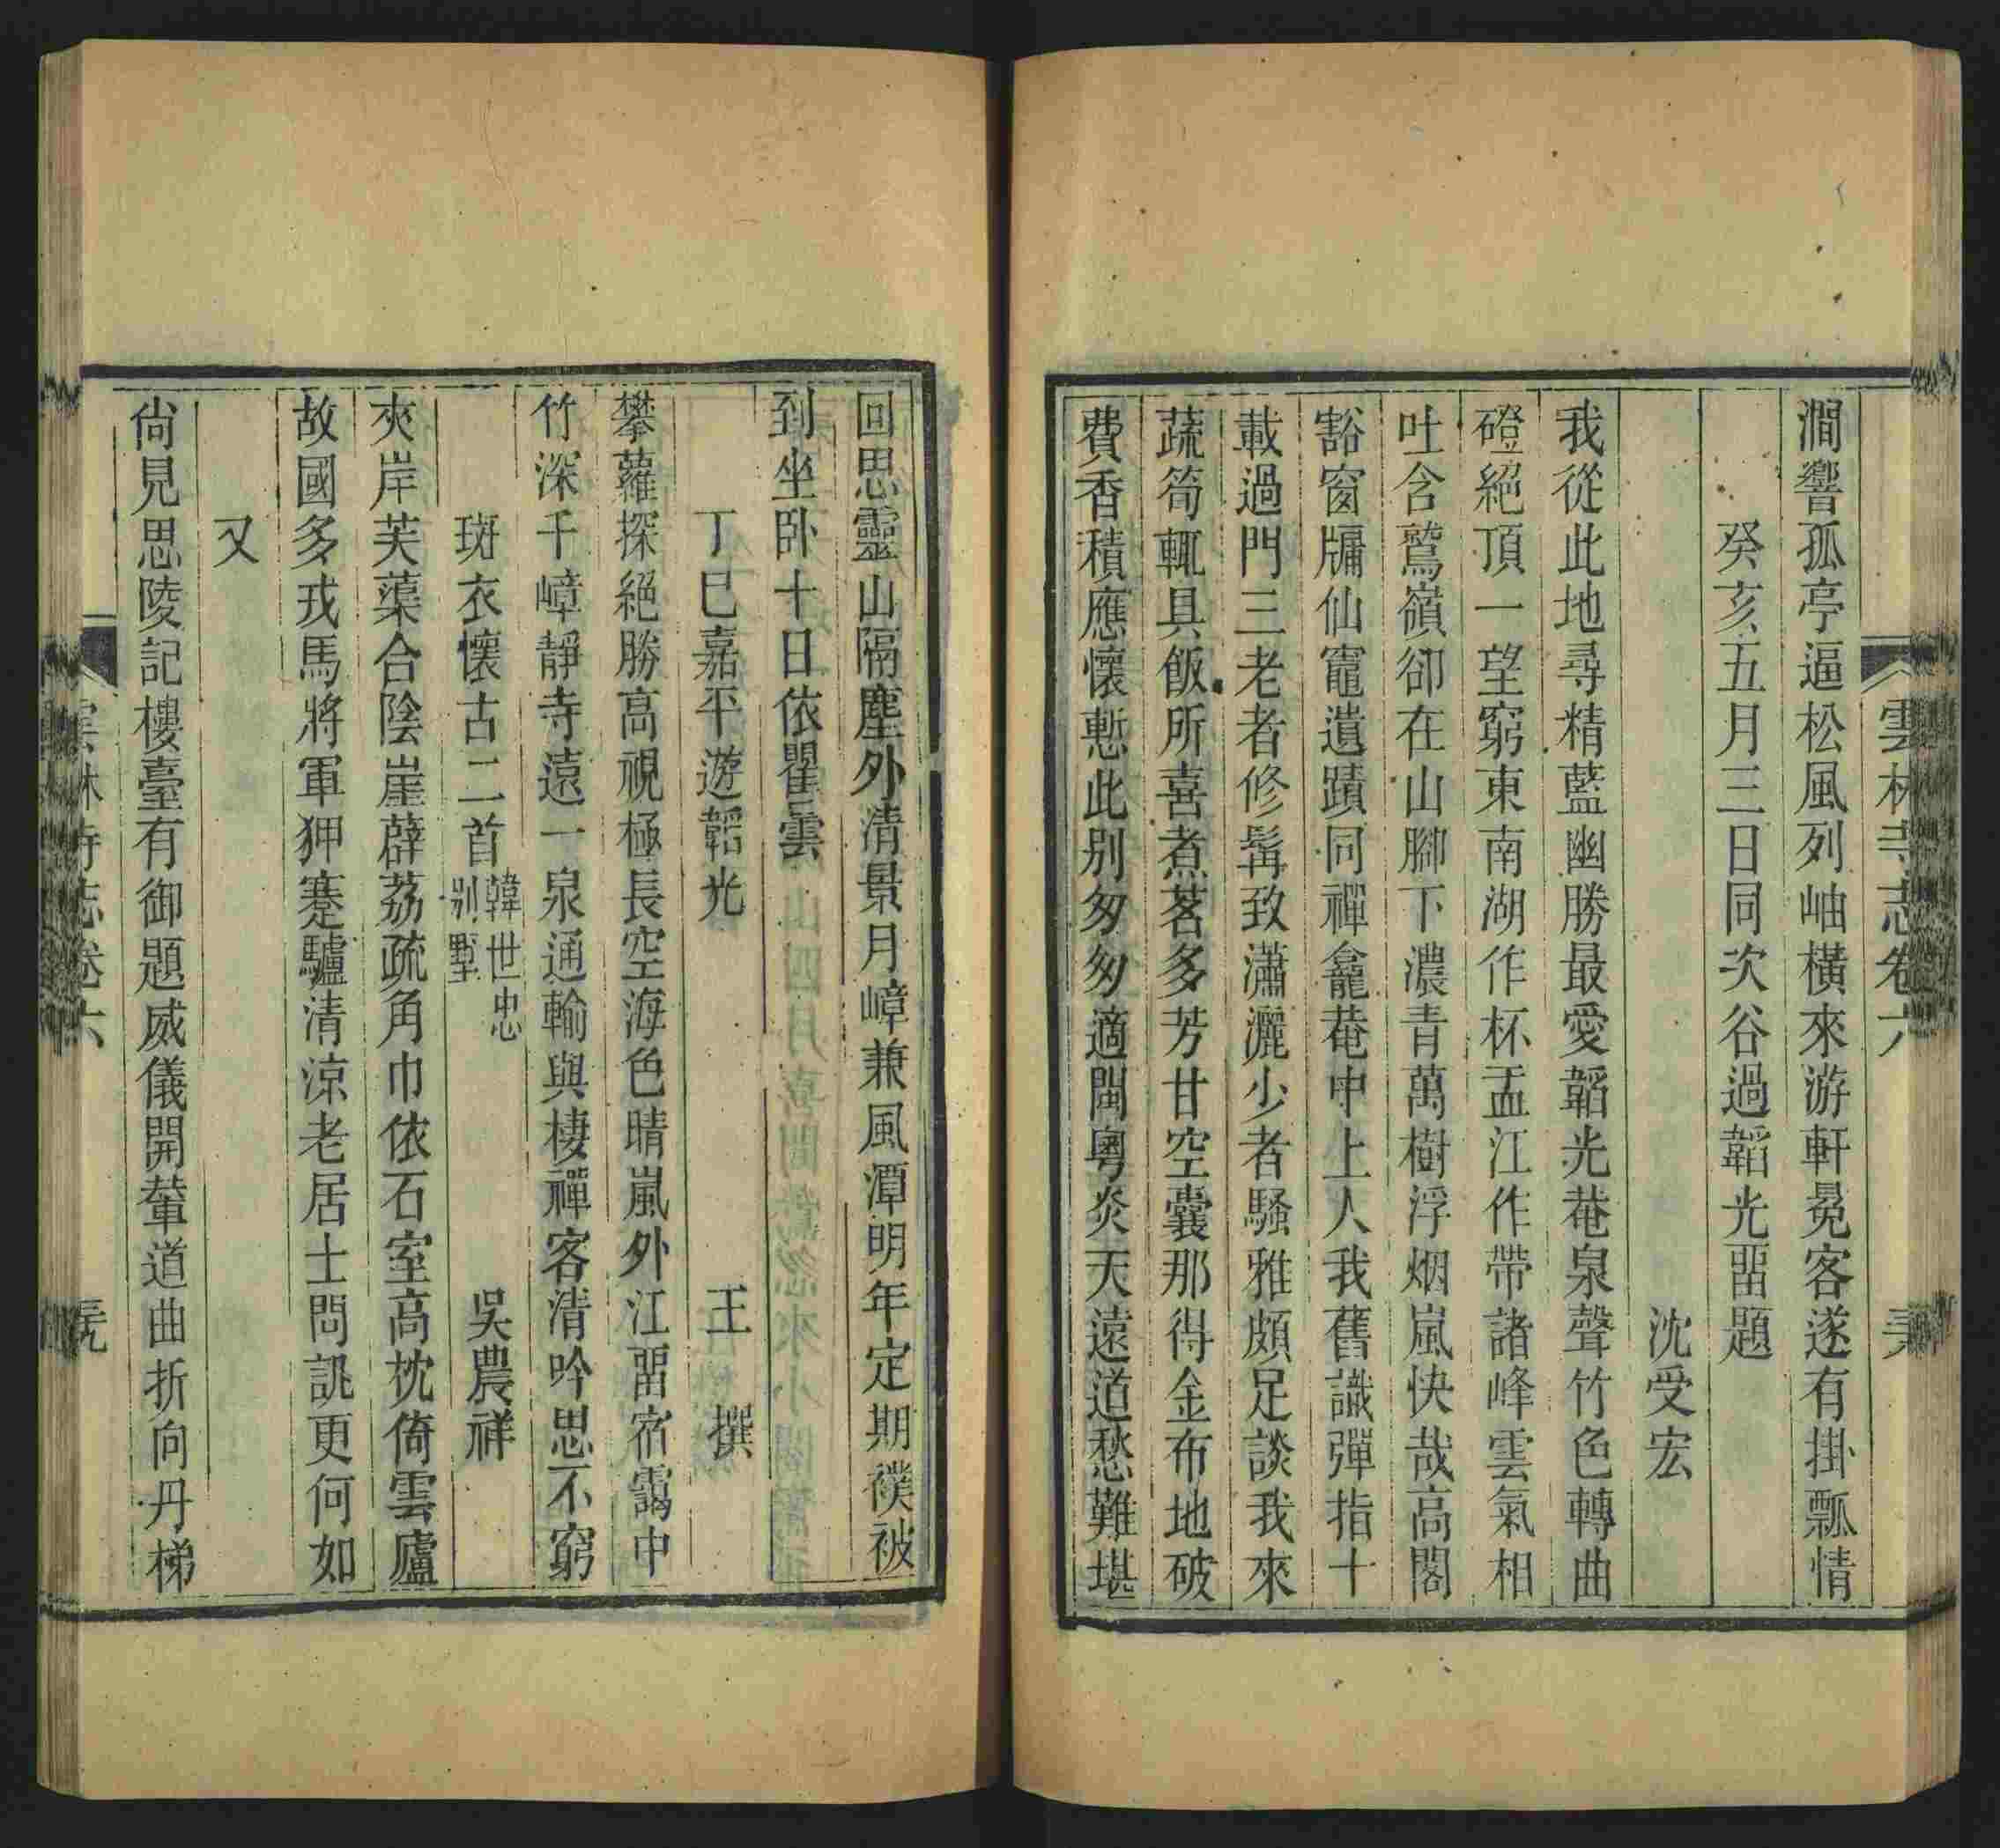 雲林寺志卷六
澗響孤亭逼松風列岫橫來游軒冕客遂有掛瓢情
癸亥五月三日同次谷過韜光畱題
沈受宏
我從此地尋精藍幽勝最愛韜光菴泉聲竹色轉曲
磴絕頂一望窮東南湖作杯盂江作帶諸峰雲氣相
吐含鷲嶺卻在山腳下濃青萬樹浮烟嵐快哉高閣
豁窗牗仙竈遺蹟同禪龕菴中上人我舊識彈指十
載過門三老者修髯致瀟灑少者騷雅頗足談我來
蔬筍輒具飯所喜煮茗多芳甘空囊那得金布地破
費香積應懷慙此別匆匆適閩粵炎天遠道愁難堪
回思靈山隔塵外清景月嶂兼風潭明年定期襆被
到坐卧十日依瞿雲
丁巳嘉平遊韜光 王撰
攀蘿探絕勝高視極長空海色晴嵐外江畱宿靄中
竹深千嶂靜寺遠一泉通輸與棲禪客清吟思不窮
斑衣懷古二首 韓世忠別墅 吳農祥
夾岸芙蕖合陰崖薜荔疏角巾依石室高枕倚雲廬
故國多戎馬將軍狎蹇驢清涼老居士問訊更何如
又
尙見思陵記樓臺有御題威儀開輦道曲折向丹梯
雲林寺志卷六